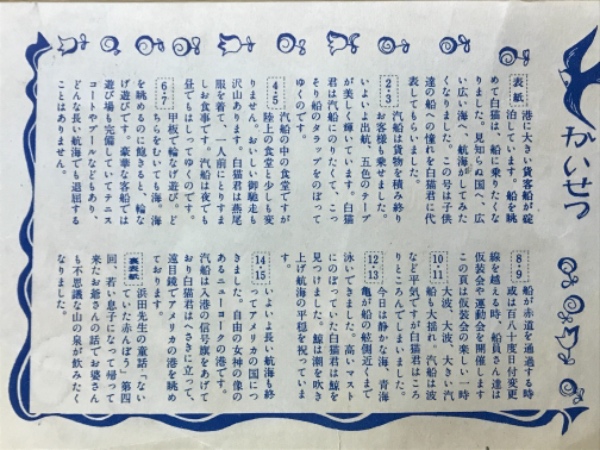 かいせつ
表紙 港に大きい貨客船が碇
泊しています。船を眺
めて白猫は、船に乗りたくな
りました。見知らぬ国へ、広
い広い海へ、航海がしてみた
くなりました。この号は子供
達の船への憧れを白猫君に代
表してもらいました。
2・3 汽船は貨物を積み終り
お客様も乗せました。
いよいよ出航、五色のテープ
が美しく輝いています。白猫
君は汽船にのりたくて、こっ
そり船のタラップをのぼって
ゆくのです。
4・5 汽船の中の食堂ですが
陸上の食堂と少しも変
りません。おいしい御馳走も
沢山あります。白猫君は燕尾
服を着て、一人前にとりすま
しお食事です。汽船は夜でも
昼でもはしってゆくのです。
6・7 甲板で輪なげ遊び。ど
ちらをむいても海。海
を眺めるのに飽きると、輪な
げ遊びです。豪華な客船では
遊び場も完備していてテニス
コートやプールなどもあり、
どんな長い航海でも退屈する
ことはありません。
8・9 船が赤道を通過する時
或は百八十度日付変更
線を越える時、船員さん達は
仮装会や運動会を開催します
この頁は仮装会の楽しい一時
10・11 大波、大波、大きい汽
船も大揺れ、汽船は波
など平気ですが白猫君はころ
りところんでしまいました。
12・13 今日は静かな海、青海
亀が船の舷側近くまで
泳いできました。高いマスト
にのぼっていた白猫君は鯨を
見つけました。鯨は潮を吹き
上げ航海の平穏を祝っていま
す。
14・15 いよいよ長い航海も終
ってアメリカの国につ
きました。自由の女神の像の
あるニューヨークの港です。
汽船は入港の信号旗をあげて
おり白猫君はへさきに立って、
遠目鏡でアメリカの港を眺め
ております。
裏表紙 浜田先生の童話「ない
ていた赤んぼう」第四
回、若い息子になって帰って
来たお爺さんの話でお婆さん
も不思議な山の泉が飲みたく
なりました。